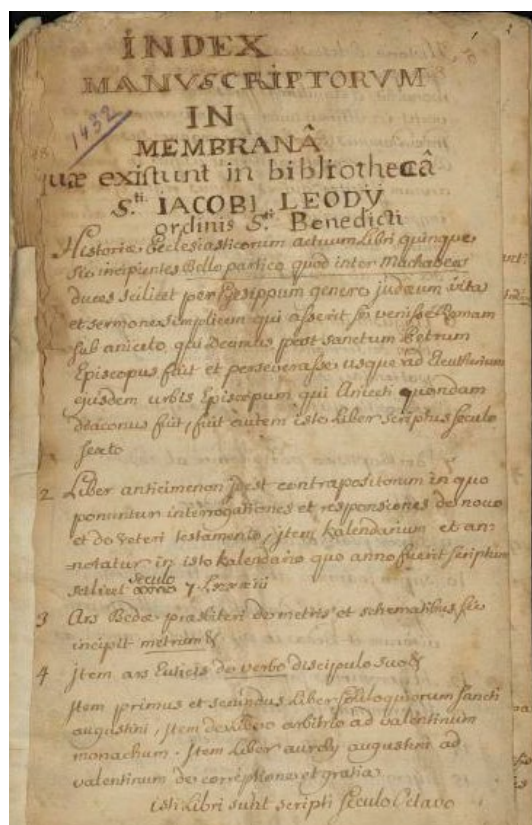 INDEX
MANUSCRIPTORUM
1432
IN
MEMBRANÂ
quæ existunt in bibliothecâ
S.ti IACOBI LEODII
ordinis S.ti Benedicti
Historiæ Ecclesiasticorum actuum Libri quinque
sic incipientes Bello partico quod inter Machabeos
duces scilicet per Egesippum genere judæum vita
et sermone simplicem qui asserit se venisse Romam
sub aniceto qui decimus post sanctum Petrum
Episcopus fuit et perseverasse usque ad Eleutherium
ejusdem urbis Episcopum qui Aniceti quondam
diaconus fuit, fuit autem iste Liber scriptus sæculo
sexto
2 Liber anticimenon idest contrapositorum in quo
ponuntur interrogationes et responsiones de novo
et de veteri testamento, jtem kalendarium et an-
notatur in isto kalendario quo anno fuerit scriptum
scilicet sæculo 7
3 Ars Bedæ præsbiteri de metris et schematibus sic
incipit metrum &
4 jtem ars Euticis de verbo discipulo suo &
jtem primus et secundus Liber soliloquiorum sancti
augustini, jtem de Libero arbitrio ad valentinum
monachum. jtem Liber aurelii augustini ad
valentinum de correptione et gratia
isti Libri sunt scripti sæculo Octavo